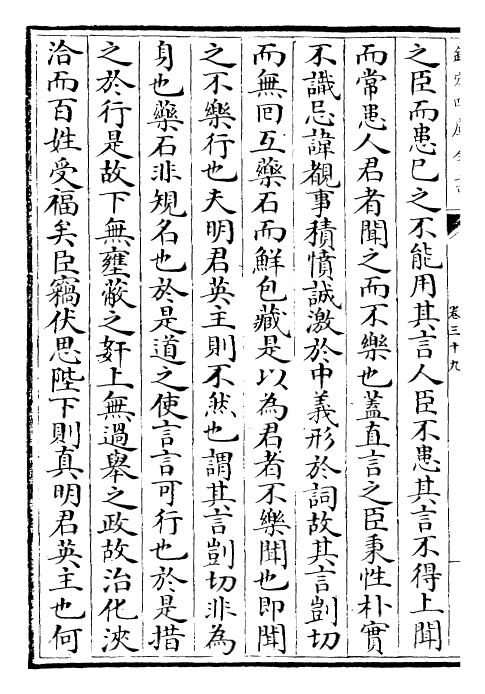 欽定四庫全書
卷三十九
之臣而患已之不能用其言人臣不患其言不得上聞
而常患人君者聞之而不樂也蓋直言之臣秉性朴實
不識忌諱覩事積憤誠激於中義形於詞故其言剴切
而無回互藥石而鮮包藏是以為君者不樂聞也即聞
之不樂行也夫明君英主則不然也謂其言剴切非為
身也藥石非規名也於是道之使言言可行也於是措
之於行是故下無壅蔽之奸上無過舉之政故治化浹
洽而百姓受福矣臣竊伏思陛下則真明君英主也何